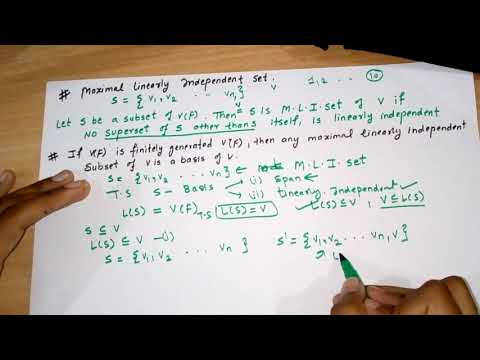 # Maximal Linearly Independent Set.
S = { v1, v2 ... vn, } v 1,2 ... 10
v
Let S be a subset of V(F). Then = S is M.L.I. set of V if
No superset of S other than S itself, is linearly independent
# If V(F) is finitely generated V(F), then any maximal linearly independent
Subset of V is a basis of V.
S = { v1, v2 ... vn } ← M.L.I. set
T.S S - Basis i) span
ii) Linearly Independent
L(S) = V(F) T.S L(S) = V L(S) ⊆ V, V ⊆ L(S)
S ⊆ V
L(S) ⊆ V -(i)
S = { v1, v2 ... vn } S' = { v1, v2 ... vn, v }
L